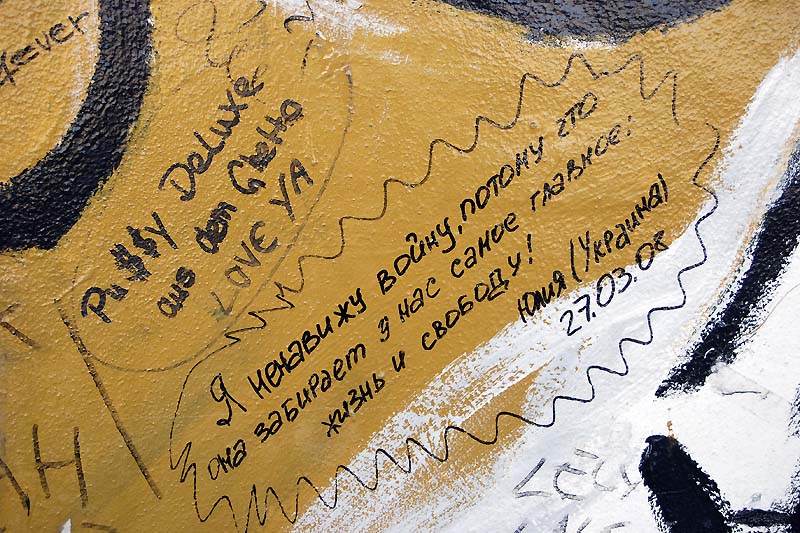 4ever
Pu$$y Deluxe
aus dem Ghetto
LOVE YA
Я ненавижу войну, потому что
она забирает у нас самое главное:
жизнь и свободу!
Юлия (Украина)
27.03.08